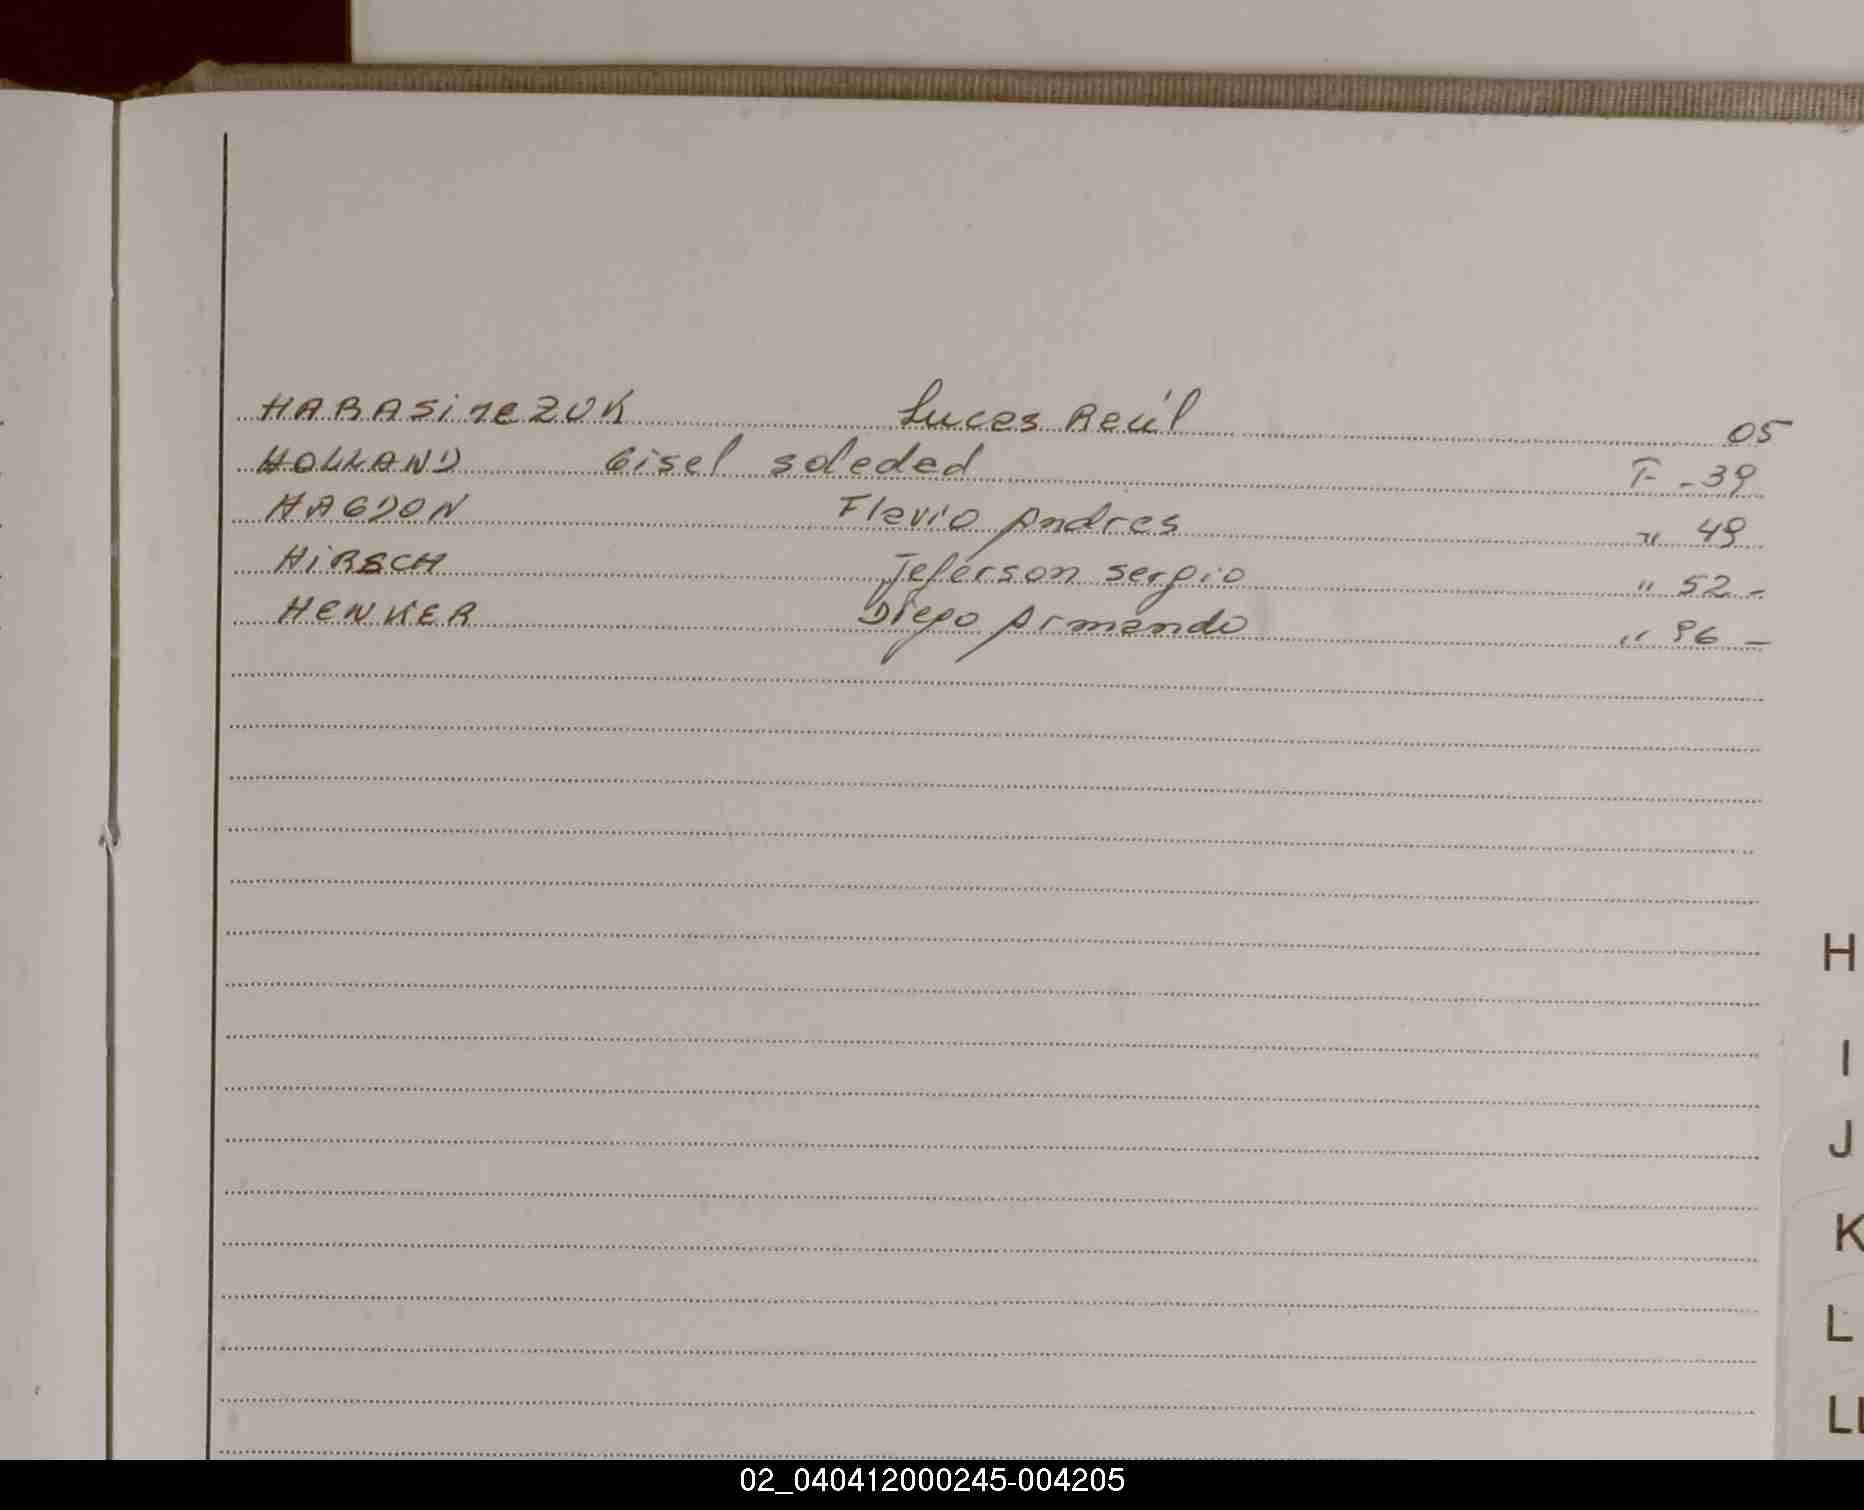 HARASiMCZUK Lucas Raúl 05
HOLLAND Gisel soledad F - 39
HAGDON Flavio Andres " 49
HiRSCH Jeferson sergio " 52 -
HENKER Diego Armando " 96 -
H
I
J
K
L
LL
02_040412000245-004205